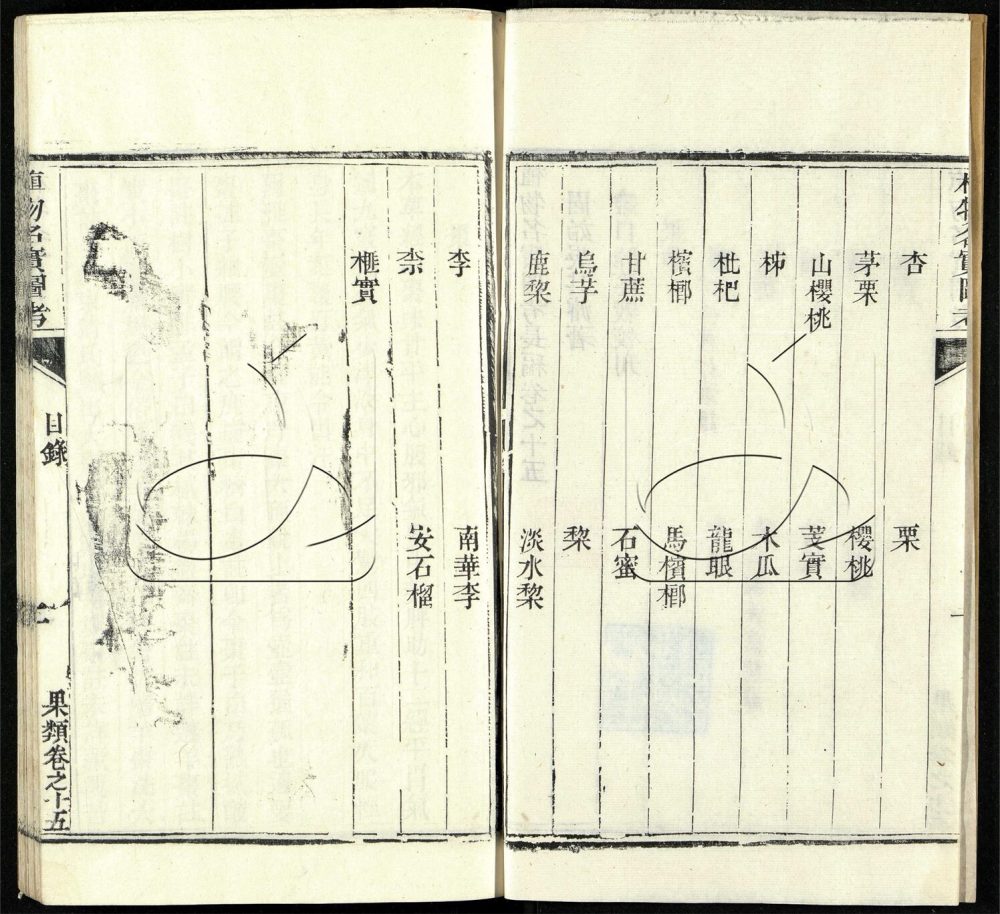 杏 栗
茅栗 櫻桃
山櫻桃 芰實
柹 木瓜
枇杷 龍眼
檳榔 馬檳榔
甘蔗 石蜜
烏芋 棃
鹿棃 淡水棃
李 南華李
柰 安石榴
榧實
植物名實圖考 目錄 果類卷之十五